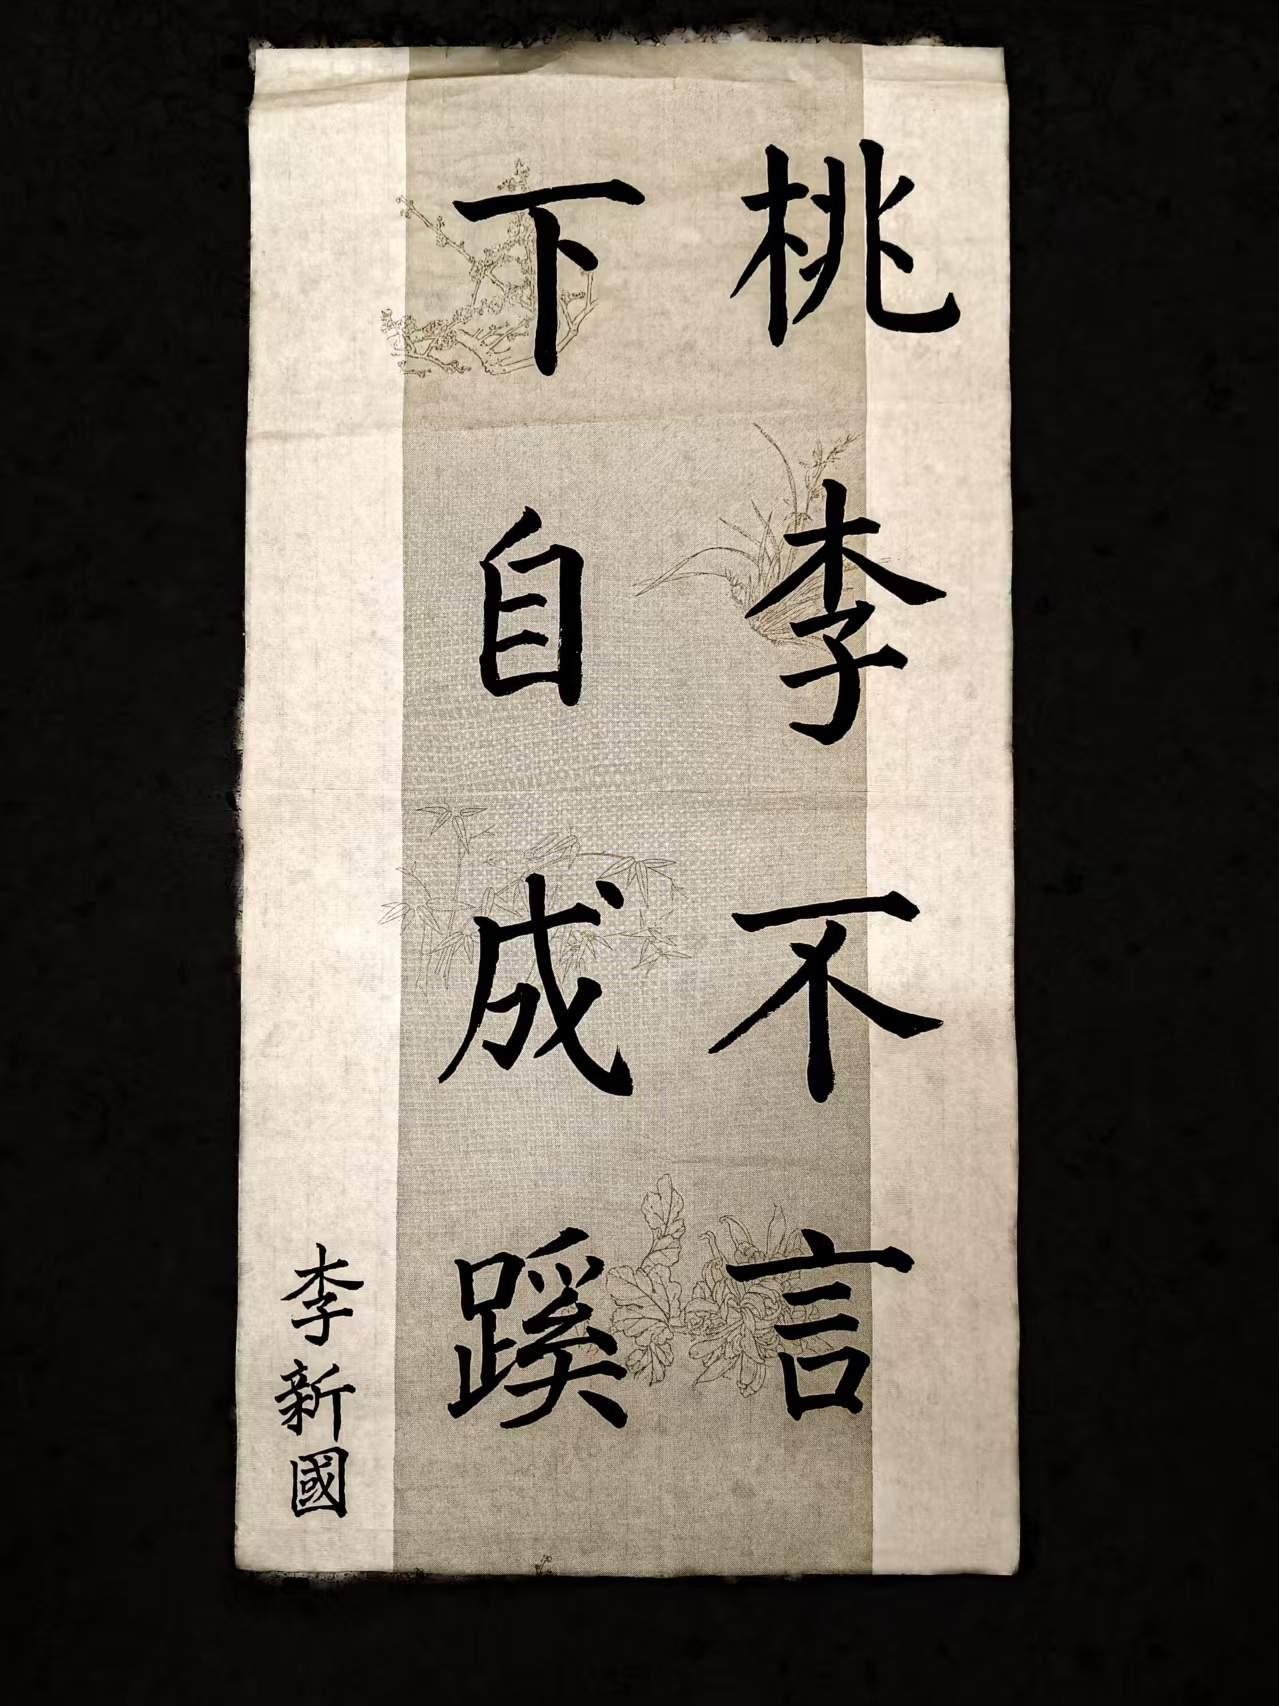 桃李不言
下自成蹊
李新國